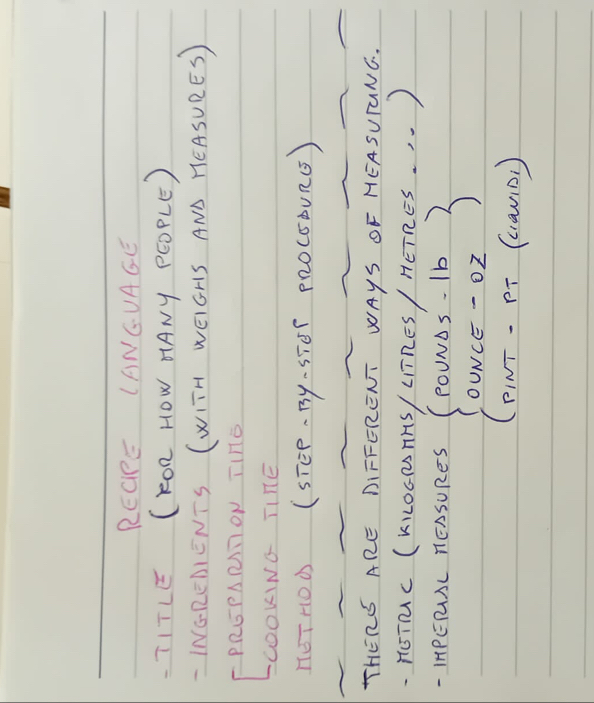 RECIPE LANGUAGE
- TITLE (FOR HOW MANY PEOPLE)
- INGREDIENTS (WITH WEIGHS AND MEASURES)
[ PREPARATION TIME
COOKING TIME
METHOD (STEP-BY-STEP PROCEDURE)
~ ~ ~ ~ ~ ~ ~ ~ ~
THERE ARE DIFFERENT WAYS OF MEASURING.
- METRIC (KILOGRAMMS/LITRES/METRES...)
- IMPERIAL MEASURES (POUNDS - lb)
(OUNCE - OZ)
(PINT - PT (LIQUIDI)